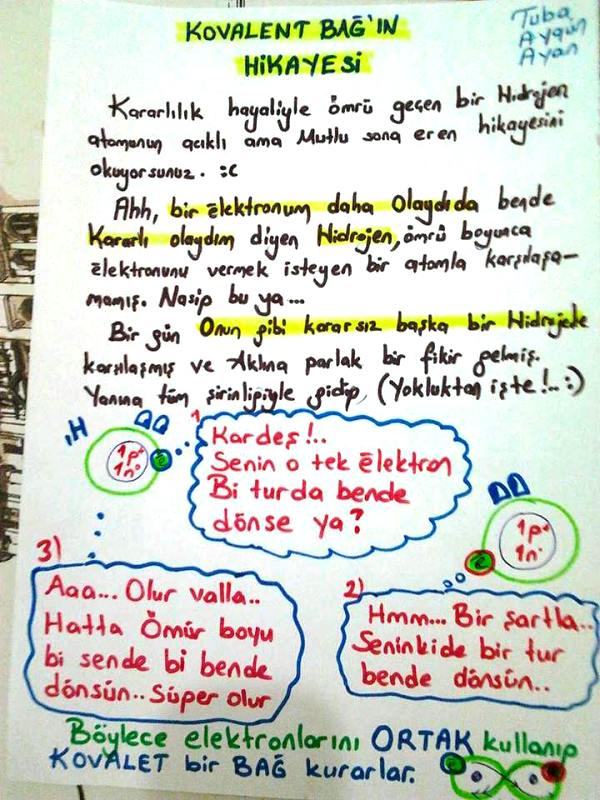 KOVALENT BAĞ'IN
HİKAYESİ
Tuba
Aygün
Ayan
Kararlılık hayaliyle ömrü geçen bir Hidrojen
atomunun acıklı ama Mutlu sona eren hikayesini
okuyorsunuz. :c
Ahh, bir ēlektronum daha Olaydıda bende
Kararlı olaydım diyen Hidrojen, ömrü boyunca
ēlektronunu vermek isteyen bir atomla karşılaşa-
mamış. Nasip bu ya...
Bir gün Onun gibi kararsız başka bir Hidrojede
karşılaşmış ve Aklına parlak bir fikir gelmiş.
Yanına tüm şirinliğiyle gidip, (Yokluktan işte!.. :)
1H
1p+
1n°
e
1
Kardeş!..
Senin o tek ēlektron
Bi turda bende
dönse ya?
1p+
1n°
e
2)
Hmm... Bir şartla..
Seninkide bir tur
bende dönsün..
3)
Aaa... Olur valla..
Hatta Ömür boyu
bi sende bi bende
dönsün.. Süper olur
Böylece elektronlarını ORTAK kullanıp
KOVALET bir BAĞ kurarlar.